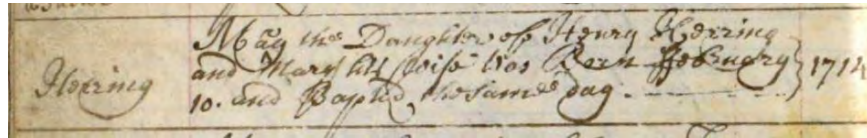 Herring
May the Daughter off Henry Herring
and Mary his wife was Born ffebruary
10. and Baptid, the same day.